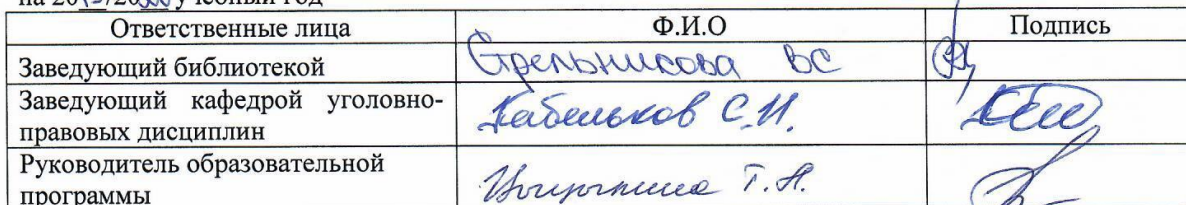 на 2019/2020 учебный год
Ответственные лица Ф.И.О Подпись
Заведующий библиотекой Стрельникова ВС
Заведующий кафедрой уголовно-
правовых дисциплин Кабельков С.Н.
Руководитель образовательной
программы Т.Н.